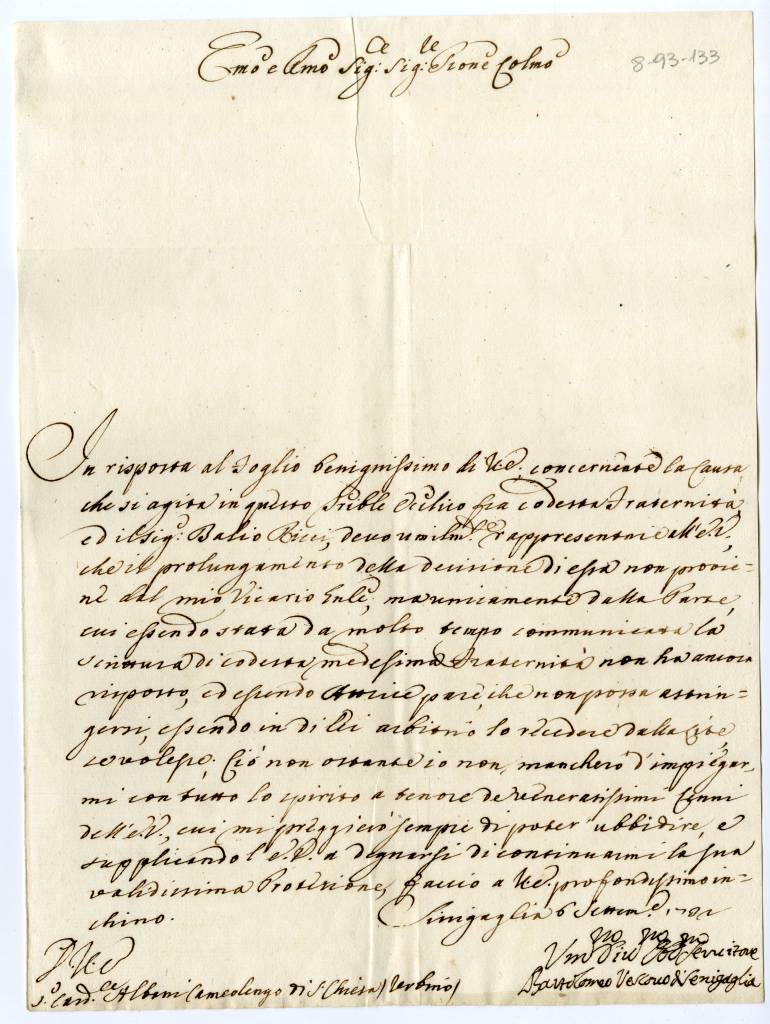 Emo e Rmo Sig: Sig: Prone Colmo
8-93-133
In risposta al foglio benignissimo di V.E. concernente la Causa,
che si agita in questo Trible Ecclico fra codesta Fraternità,
ed il Sig: Balio Ricci, devo umilmte rappresentare all'E.V.,
che il prolungamento della decisione di essa non provie-
ne dal mio Vicario Gnle, ma unicamente dalla Parte,
cui essendo stata da molto tempo communicata la
scrittura di codesta medesima Fraternità non ha ancora
risposto, ed essendo Attrice pare, che non possa astrin-
gersi, essendo in di Lei arbitrio lo recedere dalla Lite,
se volesse. Ciò non ostante io non mancherò d'impiegar-
mi con tutto lo spirito a tenore de veneratissimi Cenni
dell'E.V., cui mi preggierò sempre di poter ubbidire, e
supplicando l'E.V. a degnarsi di continuarmi la sua
validissima Protezione, faccio a V.E. profondissimo in-
chino.
Sinigaglia 6 Settem.e
V.E.
Sr Card.le Albani Camerlengo di S. Chiesa (Urbino)
Umo Divmo Obmo Servitore
Bartolomeo Vescovo di Senigaglia